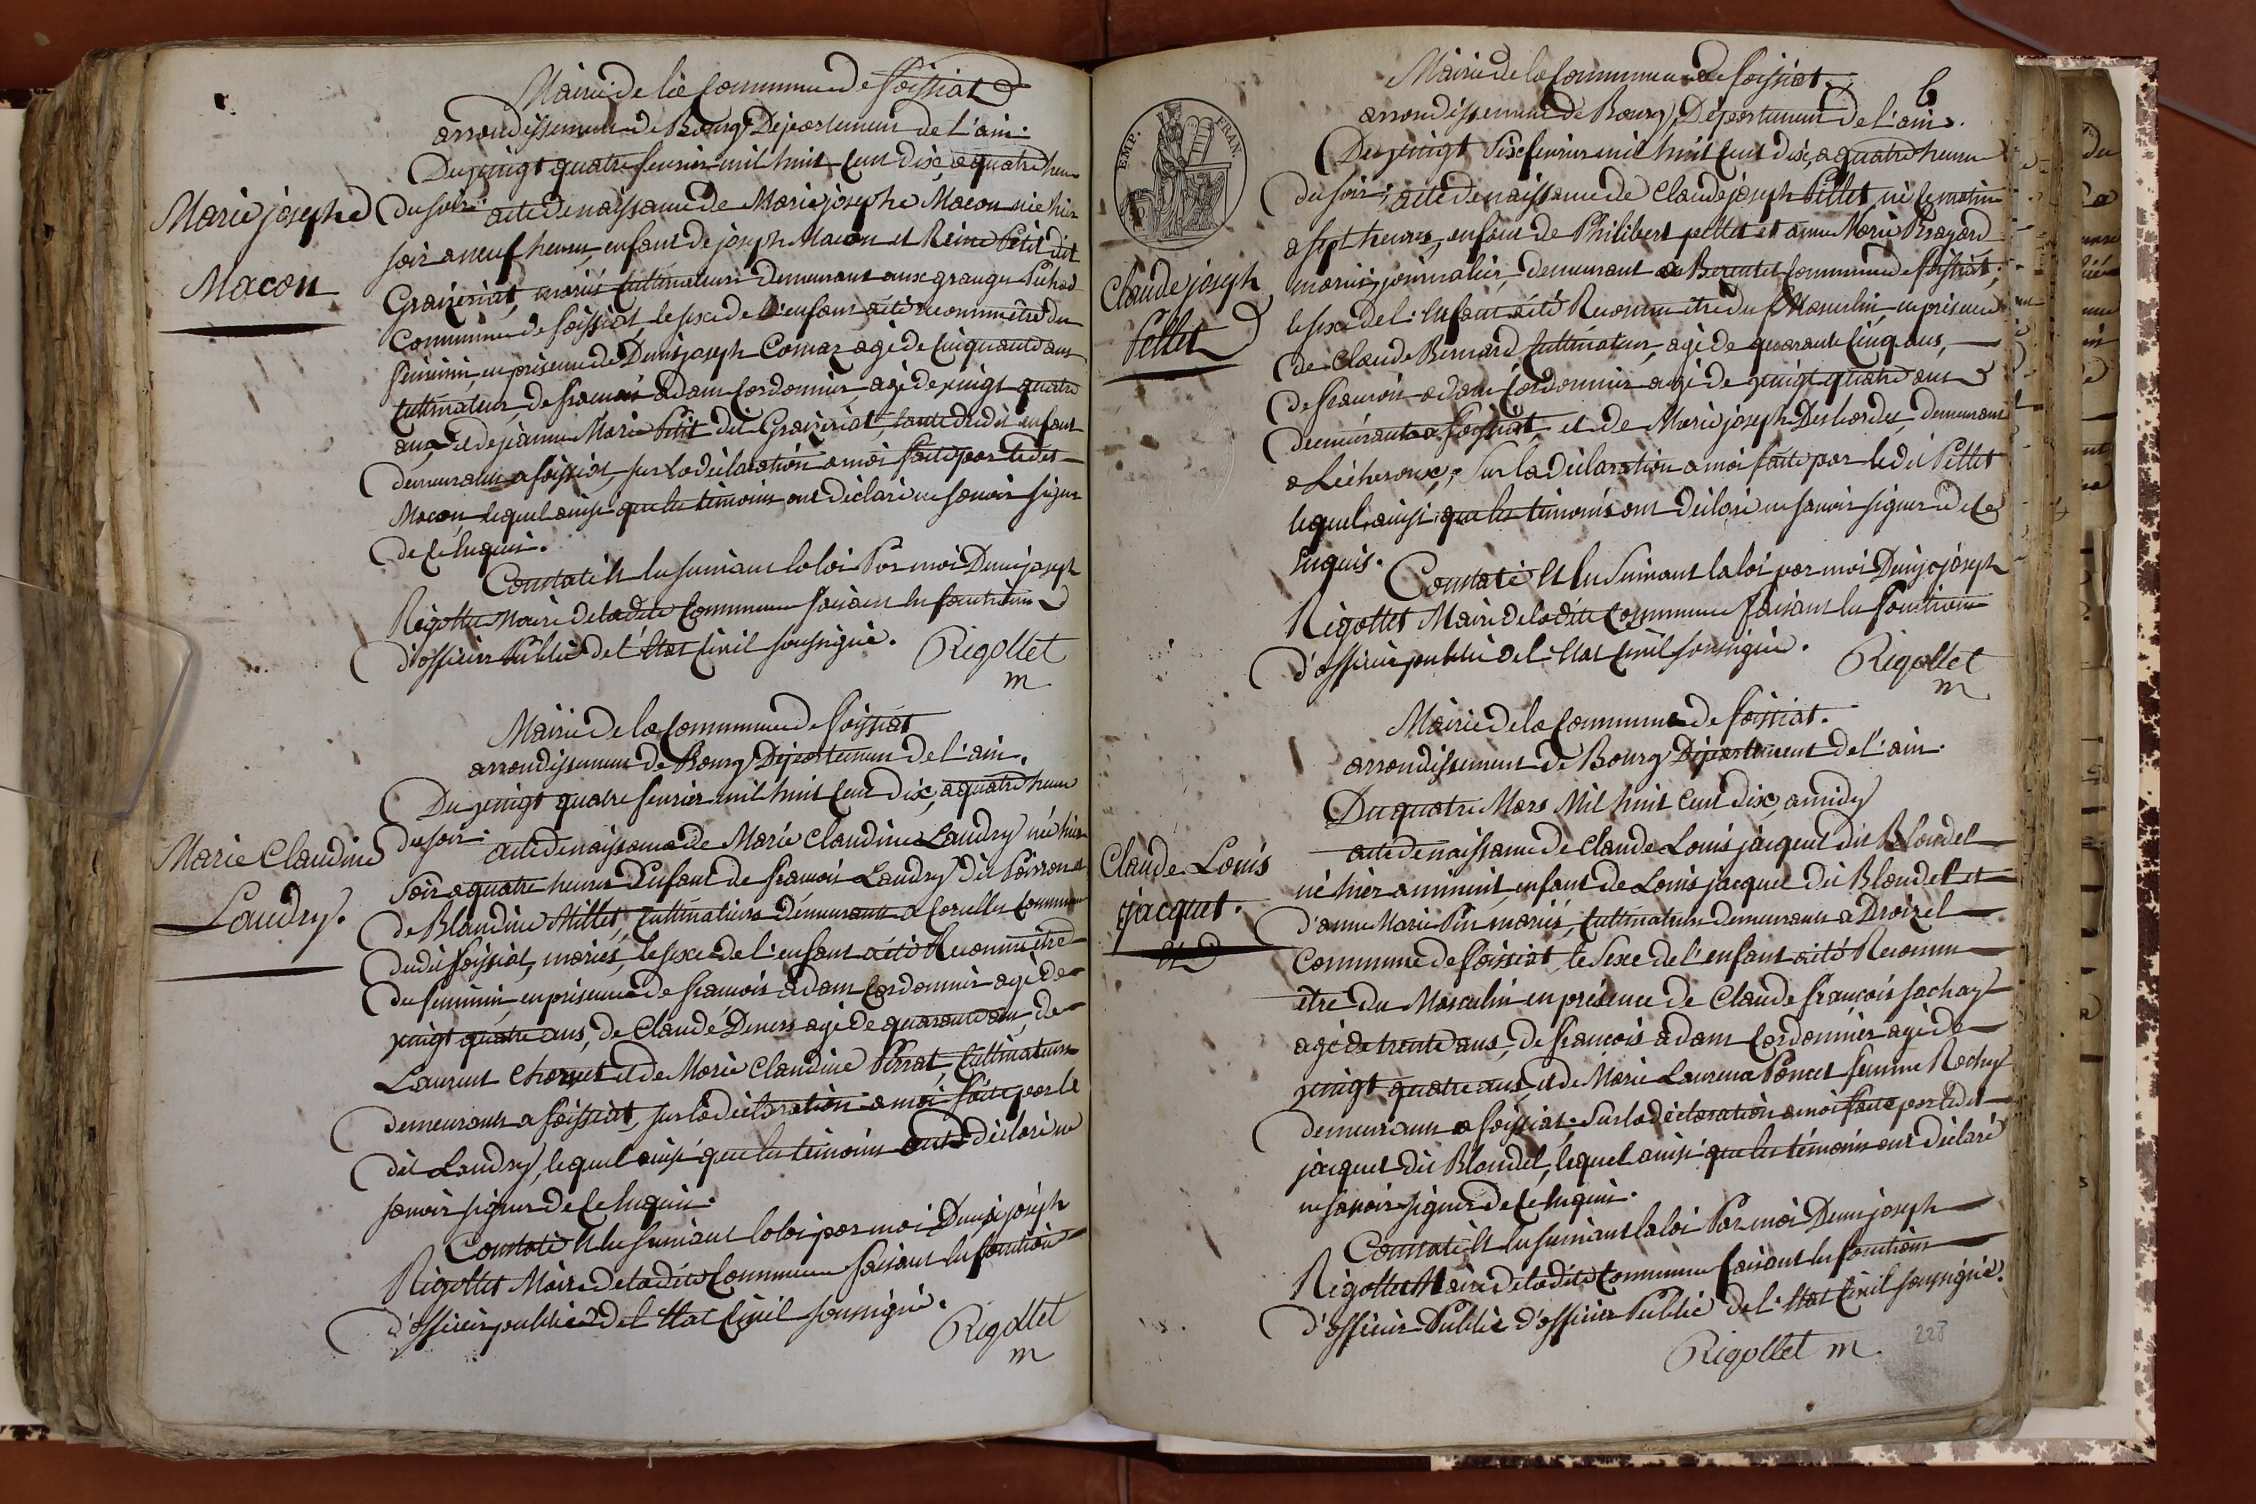 Mairie de la Commune de foissiat
arrondissement de Bourg Département de l'ain.
Du vingt quatre fevrier mil huit Cent dix, a quatre heure
Marie josephe
Macon
du soir acte de naissance de Marie josephe Macon née hier
soir a neuf heures, enfant de joseph Macon et Reine Petit dit
mariés Cultivateurs demeurant aux granges
Commune de foissiat, le sexe de l'enfant a été reconnu être du
feminin, en presence de Denis joseph Comaz agé de Cinquante ans
Cultivateur, de francois adam Cordonnier, agé de vingt quatre
ans, et de jeanne Marie Petit dit tante dudit enfant
demeurants a foissiat, sur la déclaration a moi faite par ledit
Macon, lequel ainsi que les témoins ont déclaré ne savoir signer
de Ce Enquis.
Constaté Et lu suivant la loi Par moi Denis joseph
Rigollet Maire de ladite Commune faisant les fonctions
d'officier Public de l'Etat Civil soussigné. Rigollet
m
Mairie de la Commune de foissiat
arrondissement de Bourg Département de l'ain.
Du vingt quatre fevrier mil huit Cent dix, a quatre heure
Marie Claudine
Laudry.
du soir acte de naissance de Marie Claudine Laudry né hier
soir a quatre heures Enfant de francois Laudry dit
de Blandine Millet, Cultivateurs demeurants a Commune
dudit foissiat, mariés, le sexe de l'enfant a été Reconnu être
du feminin, en présence de francois adam Cordonnier agé de
vingt quatre ans, de Claude agé de quarante ans, de
Laurent et de Marie Claudine Perrat, Cultivateurs
demeurants a foissiat, sur la déclaration a moi faite par le
dit Laudry, lequel ainsi que les témoins ont déclaré ne
savoir signer de Ce Enquis.
Constaté Et lu suivant la loi par moi Denis joseph
Rigollet Maire de ladite Commune faisant les fonctions
d'officier public de l'Etat Civil soussigné. Rigollet
m
6
Mairie de la Commune de foissiat
arrondissement de Bourg Département de l'ain.
EMP. FRAN.
Du vingt Six fevrier mil huit Cent dix, a quatre heure
Claude joseph
Pellet
du soir, acte de naissance de Claude joseph Pellet, né Ce matin
a sept heures, enfant de Philibert pellet et anne Marie
mariés, journalier, demeurant au Commune de foissiat,
le sexe de l'Enfant a été Reconnu être du Masculin, en présence
de Claude Bernard Cultivateur, agé de quarante Cinq ans,
de francois adam Cordonnier agé de vingt quatre ans
demeurant a foissiat, et de Marie joseph Desbordes demeurant
a Lécheroux, sur la déclaration a moi faite par ledit Pellet
lequel, ainsi que les témoins ont déclaré ne savoir signer de Ce
Enquis.
Constaté Et lu Suivant la loi par moi Denis joseph
Rigollet Maire de ladite Commune faisant les fonctions
d'officier public de l'Etat Civil soussigné. Rigollet
m
Mairie de la Commune de foissiat.
arrondissement de Bourg Département de l'ain.
Du quatre Mars Mil huit Cent dix, a midy
Claude Louis
jacquet.
acte de naissance de Claude Louis jacquet dit Blondel
né hier a minuit enfant de Louis jacquet dit Blondel et
d'anne Marie Pin mariés, Cultivateurs demeurants a Droizel
Commune de foissiat, le Sexe de l'enfant a été Reconnu
etre du Masculin en présence de Claude francois fachay
agé de trente ans, de francois adam Cordonnier agé de
vingt quatre ans, et de Marie Laurence Poncet femme Rochy
demeurants a foissiat. Sur la déclaration a moi faite par ledit
jacquet dit Blondel, lequel ainsi que les témoins ont déclaré
ne savoir signer de Ce Enquis.
Constaté Et lu suivant la loi Par moi Denis joseph
Rigollet Maire de ladite Commune faisant les fonctions
d'officier Public d'officier Public de l'Etat Civil soussigné.
Rigollet m.
228